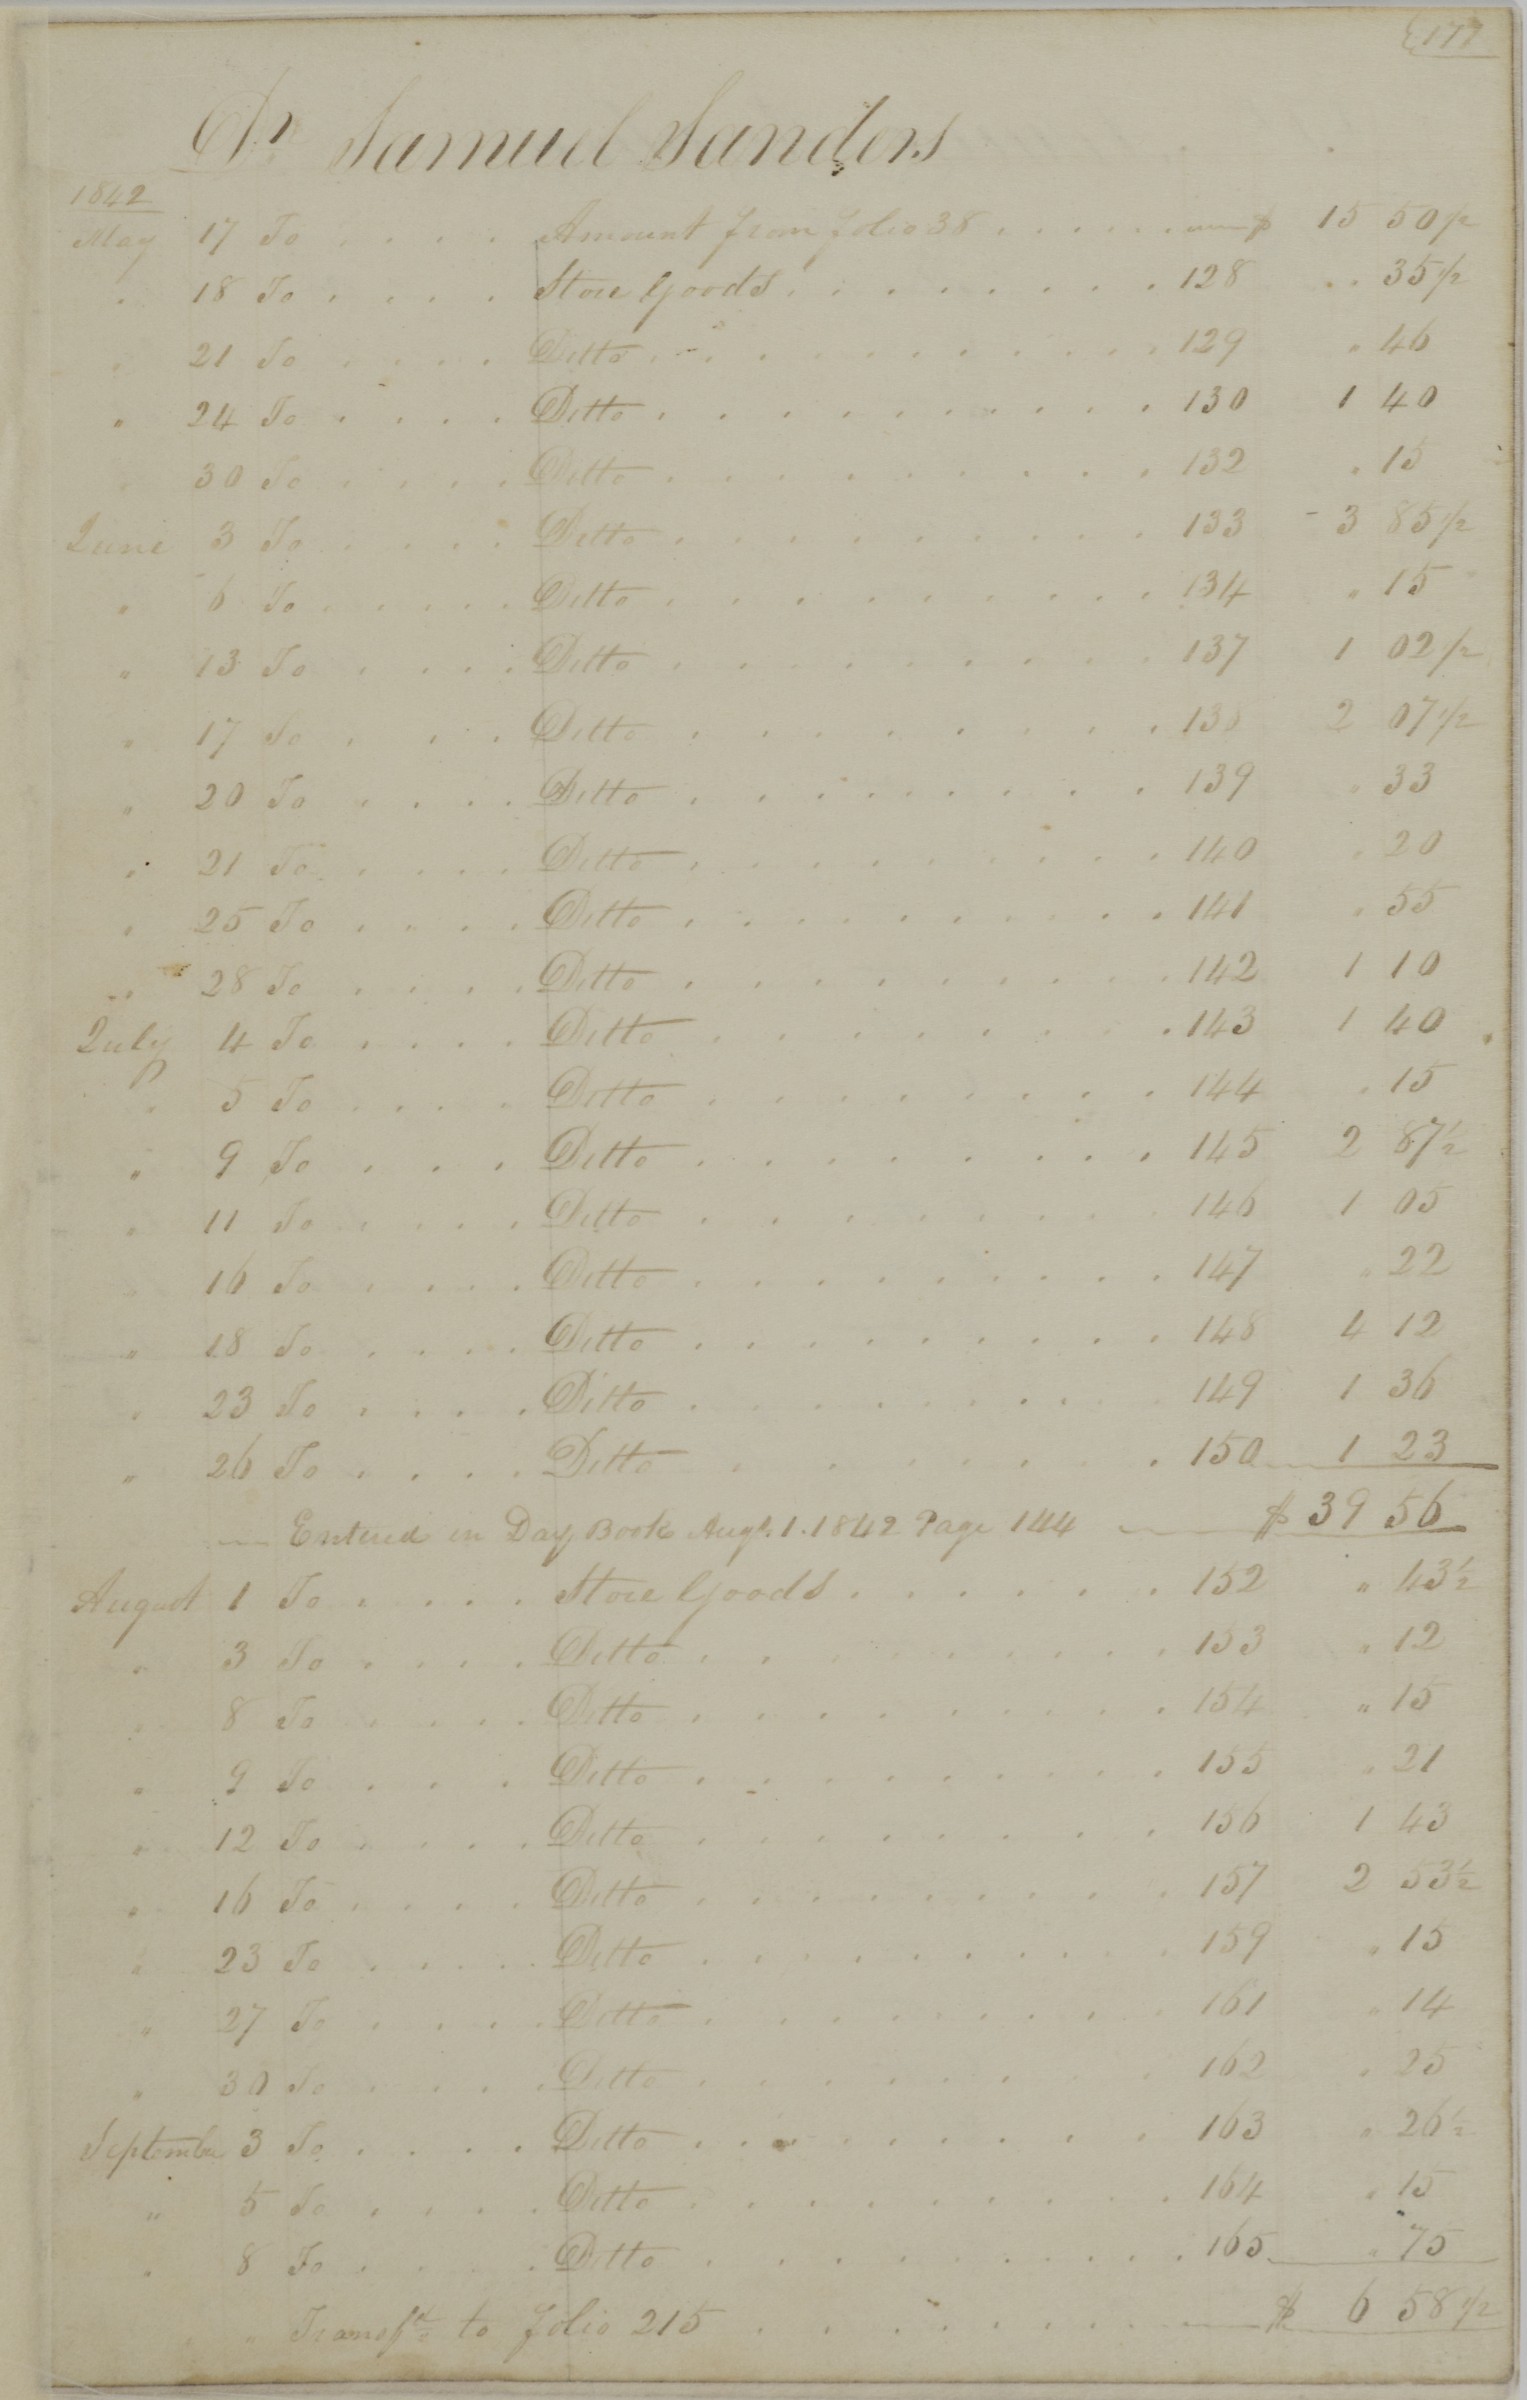 177
Dr Samuel Sanders
1842
May 17 To . . . . Amount from folio 38 . . . . . . $ 15 50 1/2
" 18 To . . . . Store Goods . . . . . . . . 128 " 35 1/2
" 21 To . . . . Ditto . . . . . . . . . . 129 " 46
" 24 To . . . . Ditto . . . . . . . . . . 130 1 40
" 30 To . . . . Ditto . . . . . . . . . 132 " 15
June 3 To . . . . Ditto . . . . . . . . . 133 3 85 1/2
" 6 To . . . . Ditto . . . . . . . . . 134 " 15
" 13 To . . . . Ditto . . . . . . . . . 137 1 02 1/2
" 17 To . . . . Ditto . . . . . . . . . 138 2 07 1/2
" 20 To . . . . Ditto . . . . . . . . . 139 " 33
" 21 To . . . . Ditto . . . . . . . . . 140 " 20
" 25 To . . . . Ditto . . . . . . . . . 141 " 55
" 28 To . . . . Ditto . . . . . . . . . 142 1 10
July 4 To . . . . Ditto . . . . . . . . . 143 1 40
" 5 To . . . . Ditto . . . . . . . . . 144 " 15
" 9 To . . . . Ditto . . . . . . . . . 145 2 87 1/2
" 11 To . . . . Ditto . . . . . . . . . 146 1 05
" 16 To . . . . Ditto . . . . . . . . . 147 " 22
" 18 To . . . . Ditto . . . . . . . . . 148 4 12
" 23 To . . . . Ditto . . . . . . . . . 149 1 36
" 26 To . . . . Ditto . . . . . . . . . 150 1 23
Entered in Day Book Augt. 1. 1842 Page 144 $ 39 56
August 1 To . . . . Store Goods . . . . . . 152 " 43 1/2
" 3 To . . . . Ditto . . . . . . . . . 153 " 12
" 8 To . . . . Ditto . . . . . . . . . 154 " 15
" 9 To . . . . Ditto . . . . . . . . . 155 " 21
" 12 To . . . . Ditto . . . . . . . . . 156 1 43
" 16 To . . . . Ditto . . . . . . . . . 157 2 53 1/2
" 23 To . . . . Ditto . . . . . . . . . 159 " 15
" 27 To . . . . Ditto . . . . . . . . . 161 " 14
" 30 To . . . . Ditto . . . . . . . . . 162 " 25
September 3 To . . . . Ditto . . . . . . . . . 163 " 26 1/2
" 5 To . . . . Ditto . . . . . . . . . 164 " 15
" 8 To . . . . Ditto . . . . . . . . . 165 " 75
" Transfd to folio 215 . . . . . . . . $ 6 58 1/2